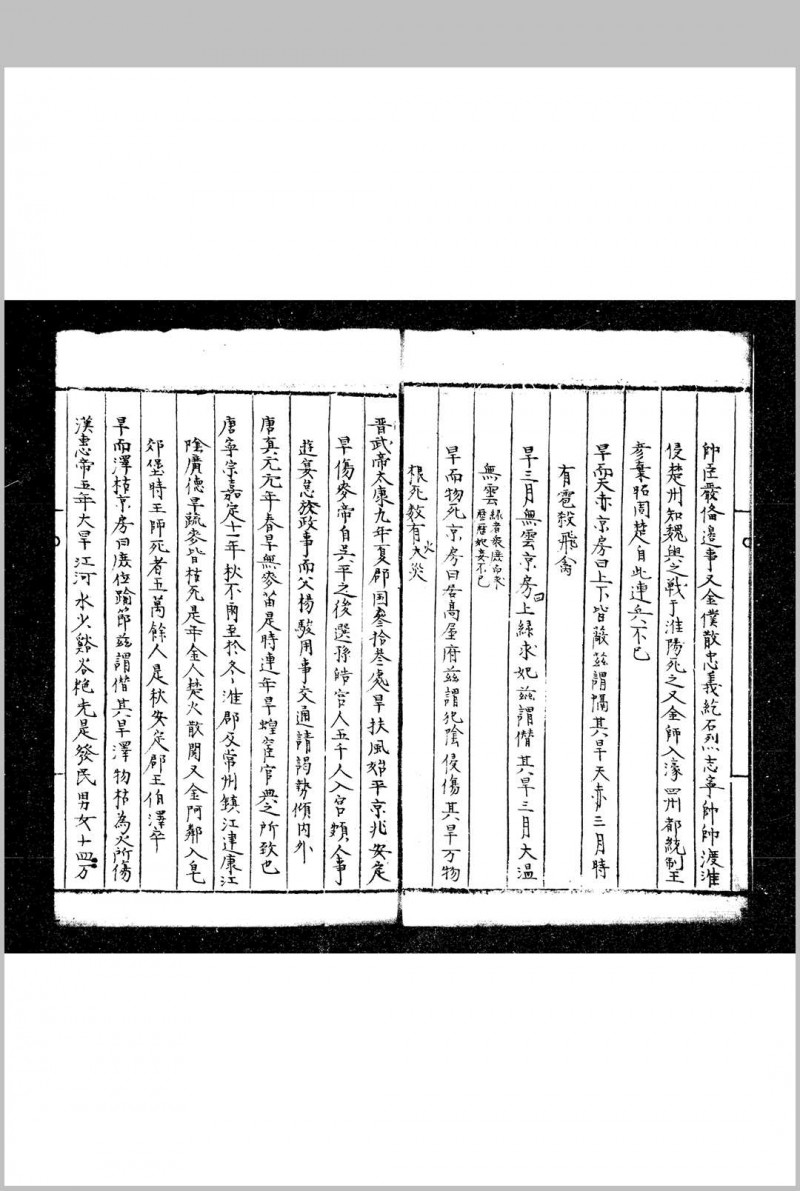 帥臣嚴俻邉事又金僕散忠義紇石烈志寧帥師渡淮
侵楚州知魏與之戰于淮陽死之又金師入濠四州都統制王
彦棄昭関楚自此連兵不已
旱而天赤京房曰上下皆蔽茲謂隔其旱天赤三月時
有雹殺飛禽
旱三月無雲京房曰上緑求妃茲謂僣其旱三月大溫
無雲緑者衆庻而求庻庻妃妾不已
旱而物死京房曰居髙䑓府茲謂犯隂侵傷其旱万物
根死数有火災
晋武帝太康九年夏郡国叁拾叁處旱扶風始平京兆安定
旱傷麥帝自吳平之後選孫皓宫人五千人入宫頻人事
遊宴怠於政事而父楊駿用事交通請謁勢傾内外
唐真元元年春旱無麥苗是時連年旱蝗宦官典之所致也
唐寧宗嘉定十一年秋不雨至於冬淮郡及常州鎮江建康江
隂廣德旱蔬麥皆枯死是年金人焚火散関又金阿鄰入皂
郊堡時王師死者五萬餘人是秋安定郡王伯澤卒
旱而澤枯京房曰庻位踰節茲謂僣其旱澤物枯為火所傷
漢恵帝五年大旱江河水少谿谷絶先是發民男女十四万